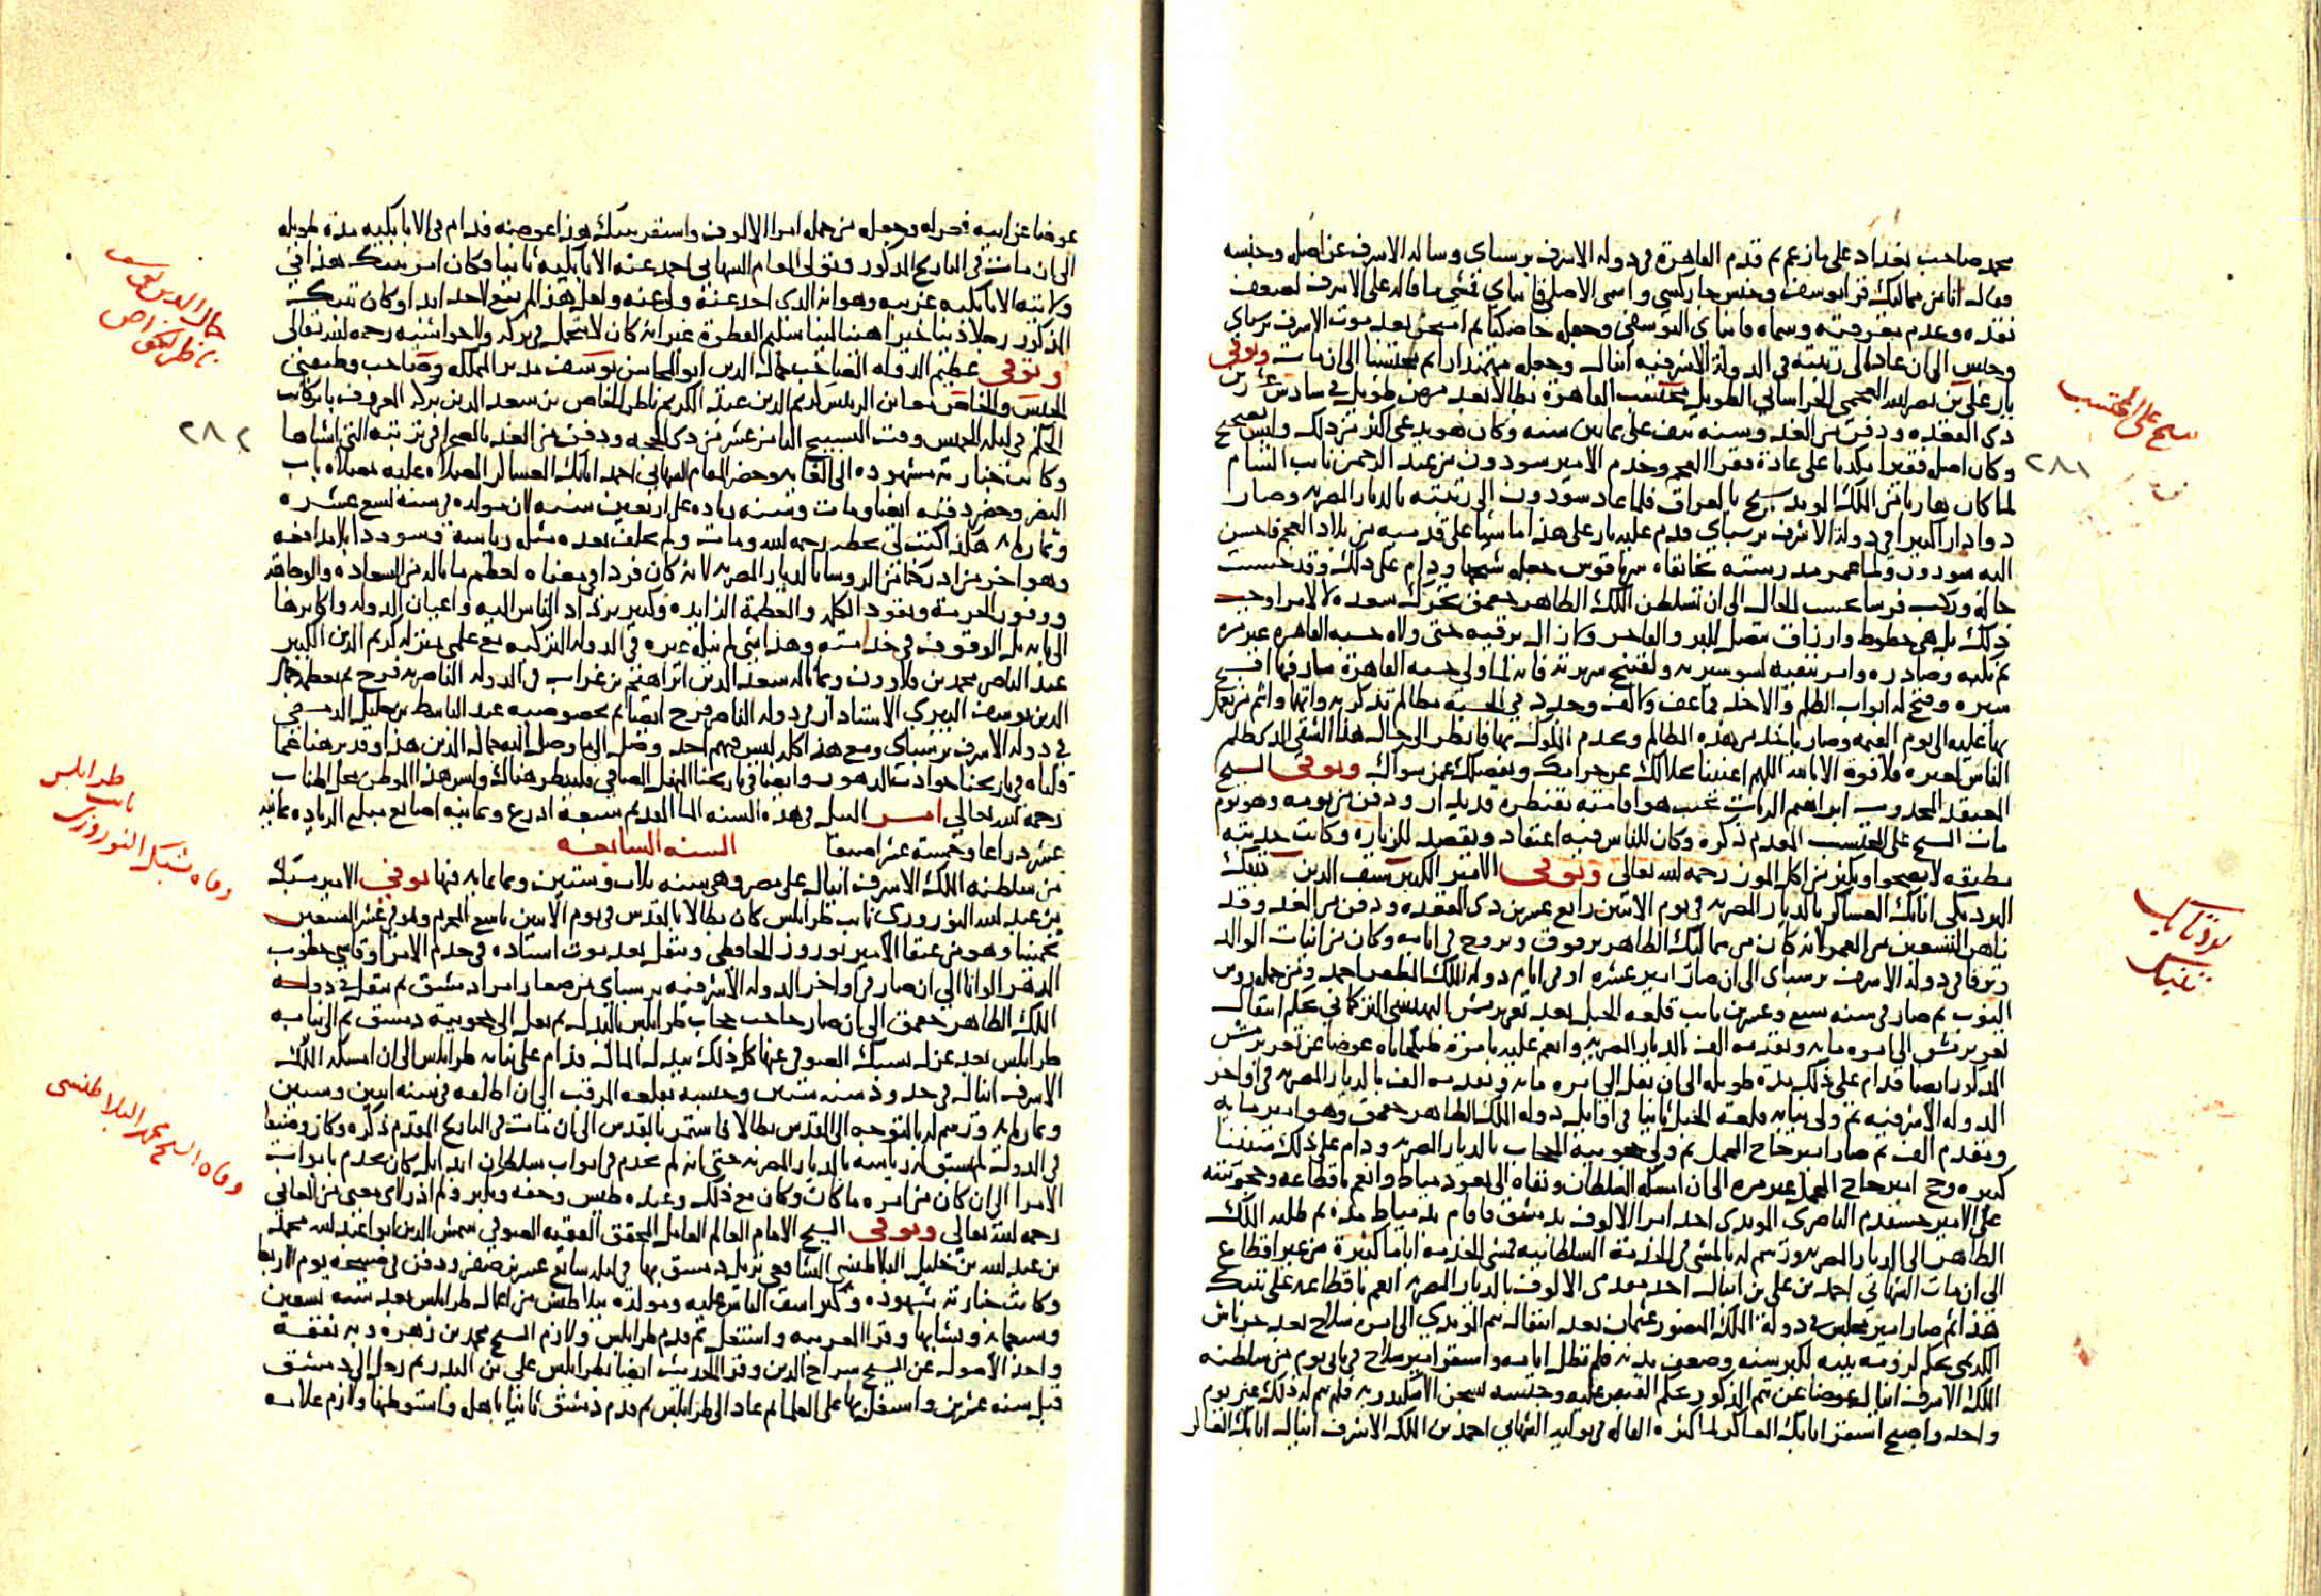 محمد صاحب بغداد على ما زعم ثم قدم القاهرة في دولة الاشرف برسباي وساله الاشرف عن اصله وجنسه
فقال انا من مماليك قرا يوسف وجنسي جاركسي واسمي الاصلي قانباي فمشى ما قاله على الاشرف لضعف
نقده وعدم معرفته وسماه قانباي اليوسفي وجعله خاصكيا ثم امتحن بعد موت الاشرف برسباي
وحبس الى ان عاد الى رتبته في الدولة الاشرفيه اينال وجعله مهمندارا ثم محتسبا الى ان مات وتوفي
يار على بن نصر الله العجمي الخراساني الطويل محتسب القاهرة بطالا بعد مرض طويل في سادس عشرين
ذي القعده ودفن من الغد وسنه نيف على ثمانين سنه وكان هو يدعي اكثر من ذلك وليس بصحيح
وكان اصله فقيرا مكديا على عادة فقرا العجم وخدم الامير سودون من عبد الرحمن نايب الشام
لما كان هاربا من الملك المويد شيخ بالعراق فلما عاد سودون الى رتبته بالديار المصريه وصار
دوادار كبيرا في دولة الاشرف برسباي قدم عليه يار على هذا ماشيا على قدميه من بلاد العجم فاحسن
اليه سودون ولما عمر مدرسته بخانقاه سرياقوس جعله شيخها ودام على ذلك وقد حسنت
حاله وركب فرسا بحسب الحال الى ان تسلطن الملك الظاهر جقمق تحرك سعده لا لامر اوجب
ذلك بل هي حظوظ وارزاق تصل للبر والفاجر وكان اله يرقيه حتى ولاه حسبه القاهره غير مره
ثم نكبه وصادره وامر بنفيه لسو سيرته ولقبيح سريرته فانه لما ولي حسبه القاهرة سار فيها اقبح
سيره وفتح له ابواب الظلم والاخذ فما عف ولا كف وجدد في الحسبه مظالم تذكر به واثمها واثم من يعمل
بها عليه الى يوم القيمه وصار ياخذ من هذه المظالم ويخدم الملوك بها فانظر الى حال هذا الشقي الذي ظلم
الناس لغيره فلا قوة الا بالله اللهم اغننا بحلالك عن حرامك وبفضلك عمن سواك وتوفي الشيخ
المعتقد المجدوب ابراهيم الزيات بحيث هو اقامته بقنطره قديدار ودفن من يومه وهو يوم
مات الشيخ على المحتسب المقدم ذكره وكان للناس فيه اعتقاد ويقصد للزيارة وكانت جدبته
مطبقه لا يصحوا ويكثر من اكل الموز رحمه الله تعالى وتوفي الامير الكبير سيف الدين تنبك
البردبكي اتابك العساكر بالديار المصريه في يوم الاثنين رابع عشرين ذي القعده ودفن من الغد وقد
ناهز التسعين من العمر لانه كان من مماليك الظاهر برقوق وتزوج في ايامه وكان من انيات الوالد
وترقا في دولة الاشرف برسباي الى ان صار امير عشره او في ايام دولة الملك المظفر احمد ومن جمله روس
النوب ثم صار في سنه سبع وعشرين نايب قلعه الجبل بعد تغري برمش البهسني التركماني بحكم انتقال
تغري برمش الى امره مايه وتقدمه الف بالديار المصريه وانعم عليه بامرة طبلخاناه عوضا عن تغري برمش
المذكور ايضا فدام على ذلك مدة طويله الى ان نقل الى امره مايه وتقدمه الف بالديار المصريه في اواخر
الدوله الاشرفيه ثم ولي نيابه قلعه الجبل ثانيا في اوايل دوله الملك الظاهر جقمق وهو امير مايه
ومقدم الف ثم صار امير حاج المحمل ثم ولي حجوبية الحجاب بالديار المصريه ودام على ذلك سنينا
كثيره وحج امير حاج المحمل غير مره الى ان امسكه السلطان ونفاه الى ثغر دمياط وانعم باقطاعه وحجوبيته
على الامير خشقدم الناصري المويدي احد امرا الالوف بدمشق فاقام بدمياط مدة ثم طلبه الملك
الظاهر الى الديار المصريه ورسم له بالمشي في الخدمة السلطانيه فمشى الخدمه اياما كثيرة من غير اقطاع
الى ان مات الشهابي احمد بن علي بن اينال احد مقدمي الالوف بالديار المصريه انعم باقطاعه على تنبك
هذا ثم صار امير مجلس في دولة الملك المنصور عثمان بعد انتقال تنم المويدي الى امره سلاح بعد جرباش
الكريمي بحكم لزومه بيته لكبر سنه وضعف بدنه فلم تطل ايامه واستقر امير سلاح في ثاني يوم من سلطنه
الملك الاشرف اينال عوضا عن تنم المذكور بحكم القبض عليه وحبسه بسجن الاسكندريه فلم يتم له ذلك غير يوم
واحد واصبح استقر اتابك العساكر لما كثره القاله في توليه الشهابي احمد بن الملك الاشرف اينال اتابك العساكر
شيخ علي المحتسب
٢٨١
تنبك
عوضا عن ابيه وجعل من جمله امرا الالوف واستقر تنبك هذا عوضه فدام في الاتابكيه مده طويله
الى ان مات في التاريخ المذكور وتولى المقام الشهابي احمد عنه الاتابكيه ثانيا وكان امر تنبك هذا في
ولايته الاتابكيه غريبه وهو انه الذي اخذ عنه ولي عنه ولعل هذا لم يقع لاحد ابدا وكان تنبك
المذكور رجلا دينا خيرا هينا لينا سليم الفطرة غير انه كان لا يتجمل في بركه ولا حواشيه رحمه الله تعالى
وتوفي عظيم الدوله الصاحب جمال الدين ابو المحاسن يوسف مدبر المملكه وصاحب وظيفتي
الجيش والخاص معا ابن الرييس كريم الدين عبد الكريم ناظر الخاص بن سعد الدين بركه المعروف بابن كاتب
جكم في ليله الخميس وقت التسبيح الثامن عشر من ذي الحجه ودفن من الغد بالصحرا في تربته التي انشاها
وكانت جنازته مشهوده الى الغايه وحضر المقام الشهابي احمد اتابك العساكر الصلاه عليه بمصلاه باب
النصر وحضر دفنه ايضا ومات وسنه زياده على اربعين سنه لان مولده في سنه تسع عشره
وثمانمايه هكذا كتب لي بخطه رحمه الله ومات ولم يخلف بعده مثله رياسة وسوددا بلا مدافعه
وهو اخر من ادركنا من الروسا بالديار المصريه لانه كان فردا في معناه لعظم ما ناله من السعاده والوجاهه
ووفور الحرمة ونفوذ الكلمه والعظمة الزايده وكثير ترداد الناس اليه واعيان الدوله واكابرها
الى بابه بل الوقوف في خدمته وهذا شي لم ينله غيره في الدوله التركيه مع علمي بمنزله كريم الدين الكبير
عند الناصر محمد بن قلاوون وبما ناله سعد الدين ابراهيم بن غراب في الدوله الناصريه فرج ثم بعظمه جمال
الدين يوسف البيري الاستادار في دوله الناصر فرج ايضا ثم بخصوصيه عبد الباسط بن خليل الدمشقي
في دوله الاشرف برسباي ومع هذا كله ليس فيهم احد وصل الى ما وصل اليه جمال الدين هذا وقد برهنا عما
قلناه في تاريخنا حوادث الدهور وايضا في تاريخنا المنهل الصافي فلينظر هناك وليس هذا الموطن محل اطناب
رحمه الله تعالى امر النيل في هذه السنه الما القديم سبعه اذرع وثمانيه اصابع مبلغ الزياده ثمانيه
عشر ذراعا وخمسة عشر اصبعا السنه السابعه
من سلطنه الملك الاشرف اينال على مصر وهي سنه ثلاث وستين وثمانمايه فيها توفي الامير يشبك
بن عبد الله النوروزي نايب طرابلس كان بطالا بالقدس في يوم الاثنين تاسع المحرم وهو في عشر السبعين
تخمينا وهو من عتقا الامير نوروز الحافظي وتنقل بعد موت استاده في خدم الامرا وقاسي خطوب
الدهر الوانا الى ان صار في اواخر الدوله الاشرفيه برسباي من صغار امرا دمشق ثم تنقل في دولة
الملك الظاهر جقمق الى ان صار حاجب حجاب طرابلس بالبذل ثم نقل الى حجوبية دمشق ثم الى نيابه
طرابلس بعد عزل يشبك الصوفي عنها كل ذلك ببذل المال فدام على نيابه طرابلس الى ان امسكه الملك
الاشرف اينال في حدود سنه ستين وحبسه بقلعه المرقب الى ان اطلقه في سنه اثنين وستين
وثمانمايه ورسم له بالتوجه الى القدس بطالا فاستمر بالقدس الى ان مات في التاريخ المقدم ذكره وكان وضيعا
في الدوله لم تسبق له رياسه بالديار المصريه حتى انه لم يخدم في ابواب سلطان ابدا بل كان يخدم بابواب
الامرا الى ان كان من امره ما كان وكان مع ذلك عنده طيش وخفه وتكبر ولم ادر لاي معنى من المعاني
رحمه الله تعالى وتوفي الشيخ الامام العالم العامل المحقق الفقيه الصوفي شمس الدين ابو عبد الله محمد
بن عبد الله بن خليل البلاطنسي الشافعي نزيل دمشق بها في ليله سابع عشرين صفر ودفن في صبيحه يوم الاربعا
وكانت جنازته مشهوده وكثر اسف الناس عليه ومولده ببلاطنس من اعمال طرابلس بعد سنه تسعين
وسبعمايه ونشا بها وقرا العربيه واشتغل ثم قدم طرابلس ولازم الشيخ محمد بن زهره وبه تفقه
واخذ الاصول عن الشيخ سراج الدين وقرا الحديث ايضا بطرابلس على بن البدر ثم رحل الى دمشق
قبل سنه عشرين واشتغل بها على العلما ثم عاد الى طرابلس ثم قدم دمشق ثانيا باهله واستوطنها ولازم علامه
جمال الدين يوسف
ناظر الخواص
٢٨٢
وفاه يشبك النوروزي
نايب
طرابلس
وفاه الشيخ محمد البلاطنسي